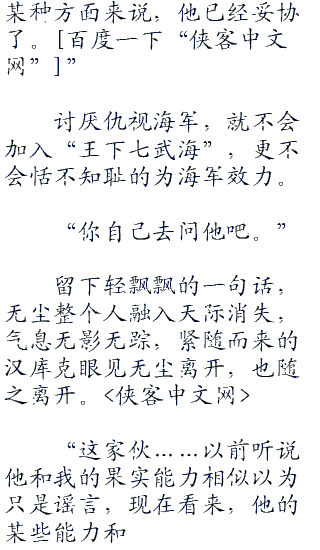 某种方面来说，他已经妥协
了。[百度一下“侠客中文
网”]”
讨厌仇视海军，就不会
加入“王下七武海”，更不
会恬不知耻的为海军效力。
“你自己去问他吧。”
留下轻飘飘的一句话，
无尘整个人融入天际消失，
气息无影无踪，紧随而来的
汉库克眼见无尘离开，也随
之离开。<侠客中文网>
“这家伙……以前听说
他和我的果实能力相似以为
只是谣言，现在看来，他的
某些能力和